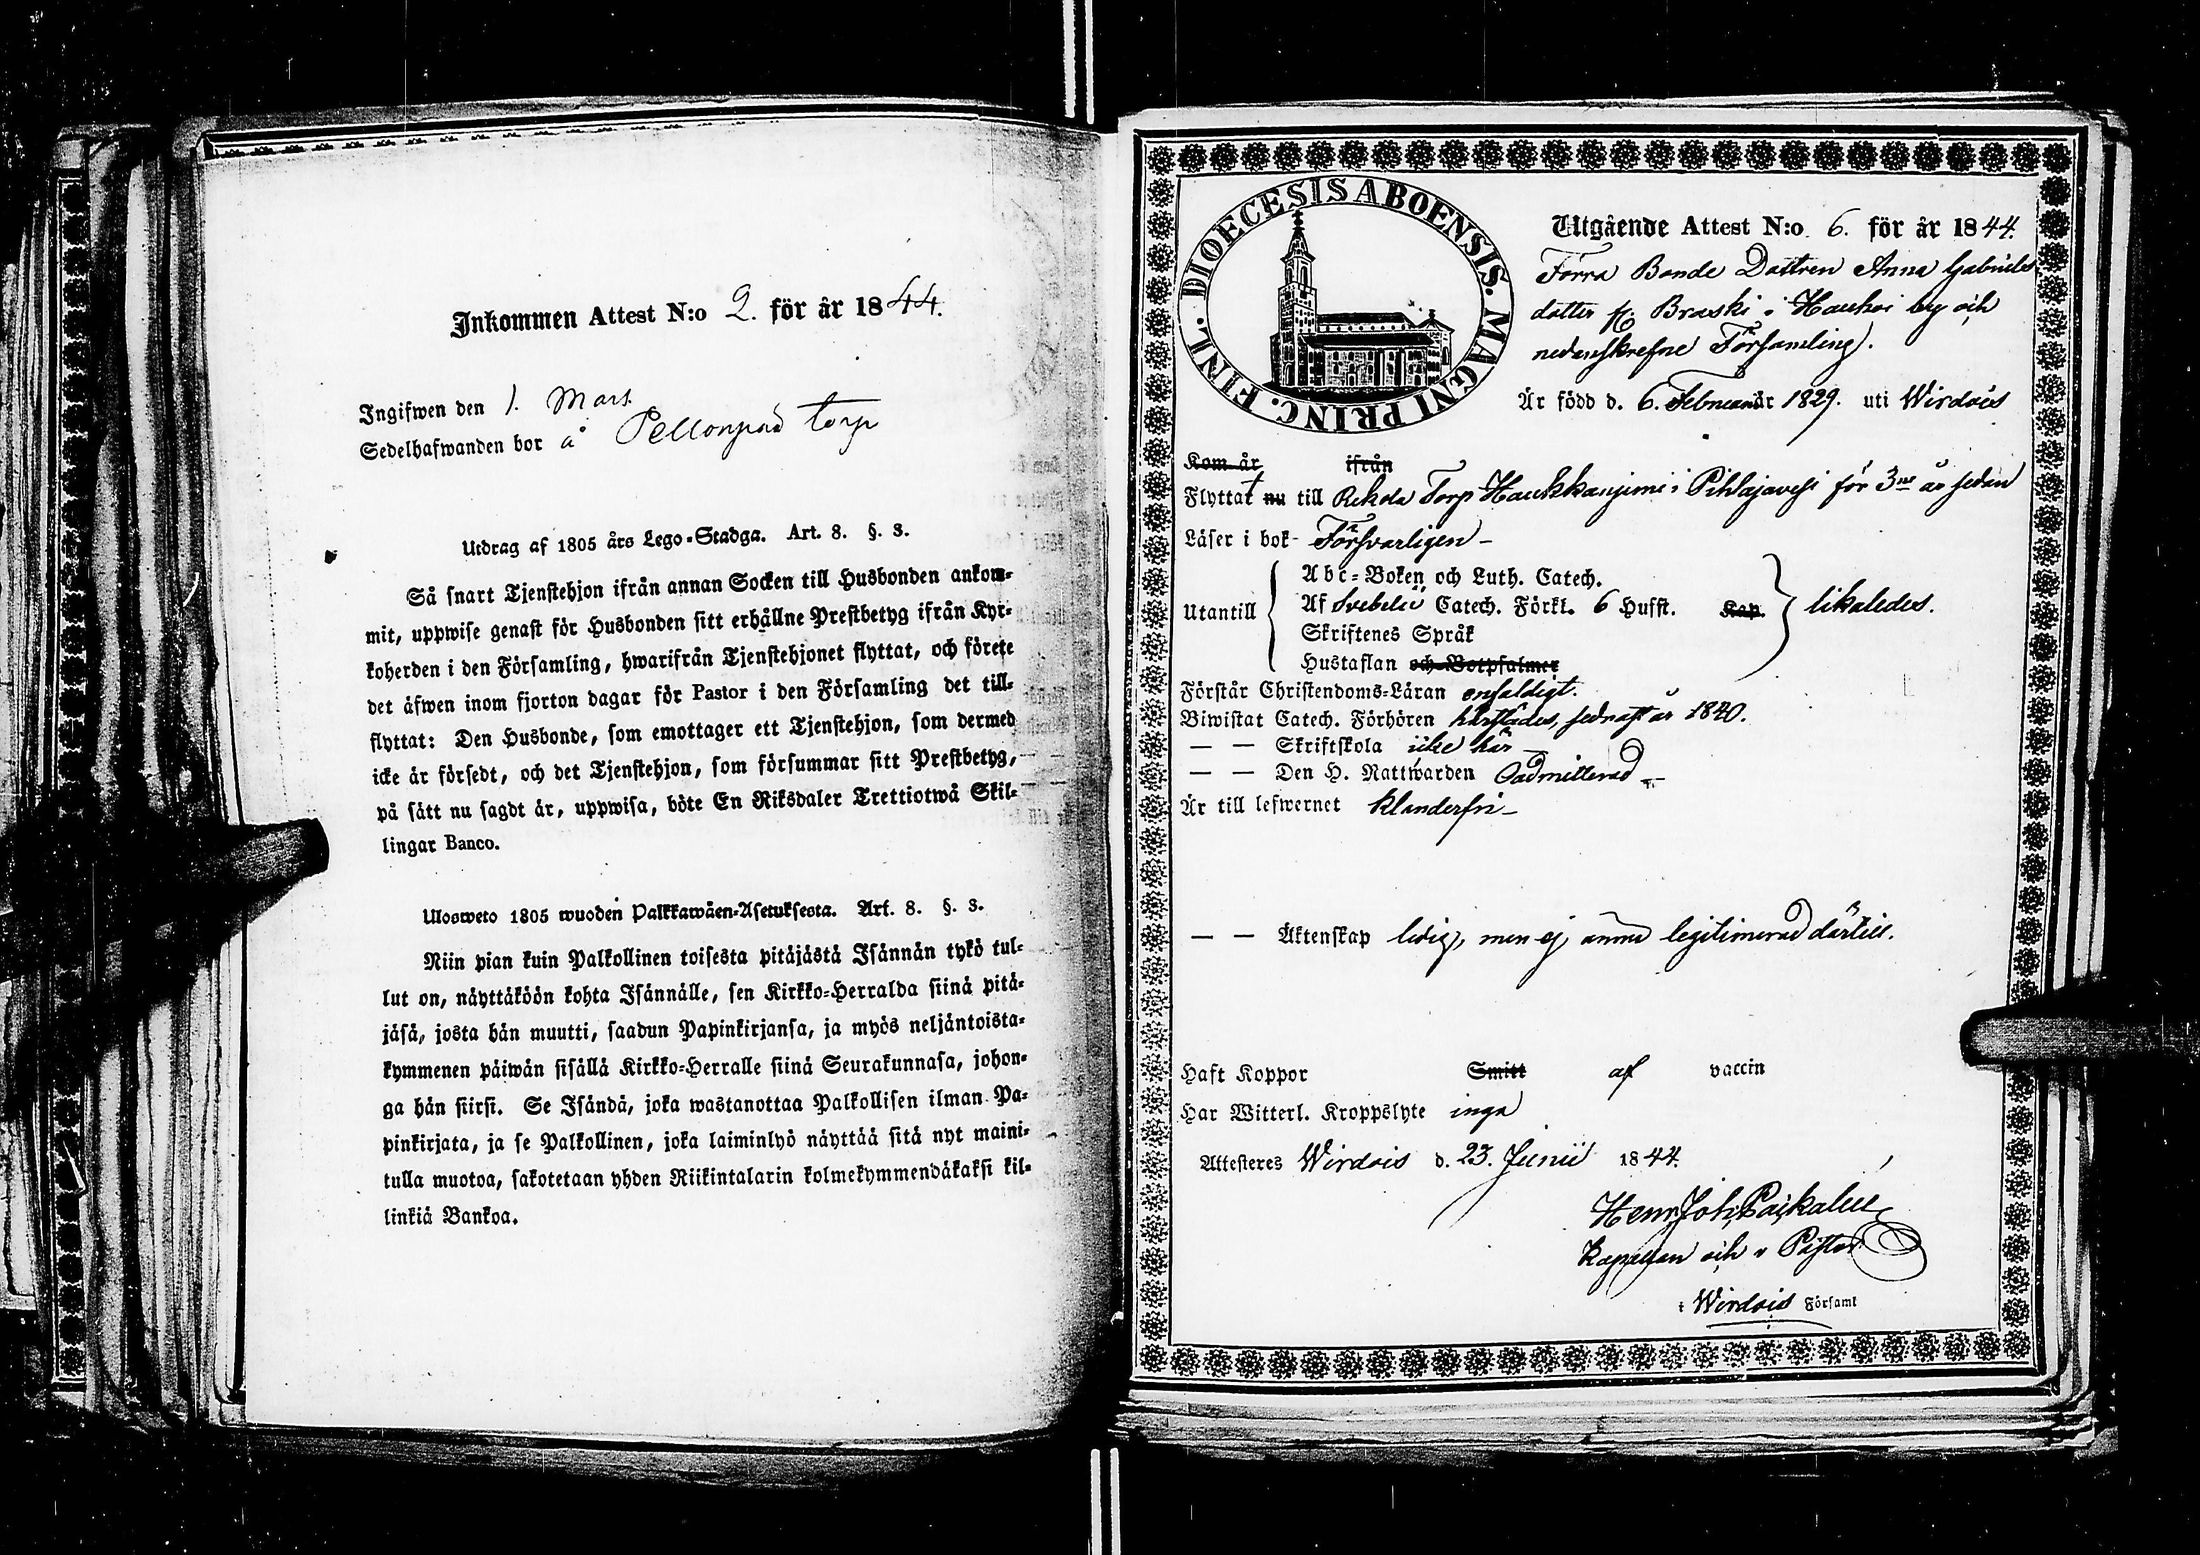 Inkommen Attest N:o 2. för år 1844.
Ingifwen den 1. Mart.
Sedelhafwanden bor å Pellonpää torp
Utdrag af 1805 års Lego-Stadga. Art. 8. §. 3.
Så snart Tjenstehjon ifrån annan Socken till Husbonden ankom-
mit, uppwise genast för Husbonden sitt erhållne Prestbetyg ifrån Kyr-
koherden i den Församling, hwarifrån Tjenstehjonet flyttat, och förete
det äfwen inom fjorton dagar för Pastor i den Församling det till-
flyttat: Den Husbonde, som emottager ett Tjenstehjon, som dermed
icke är försedt, och det Tjenstehjon, som försummar sitt Prestbetyg,
på sätt nu sagdt är, uppwisa, böte En Riksdaler Trettiotwå Skil-
lingar Banco.
Ulosweto 1805 wuoden Palkkawäen-Asetuksesta. Art. 8. §. 3.
Niin pian kuin Palkollinen toisesta pitäjästä Isännän tykö tul-
lut on, näyttäköön kohta Isännälle, sen Kirkko-Herralda siinä pitä-
jäsä, josta hän muutti, saadun Papinkirjansa, ja myös neljäntoista-
kymmenen päiwän sisällä Kirkko-Herralle siinä Seurakunnasa, johon-
ga hän siirsi. Se Isändä, joka wastanottaa Palkollisen ilman Pa-
pinkirjata, ja se Palkollinen, joka laiminlyö näyttää sitä nyt maini-
tulla muotoa, sakotetaan yhden Riikintalarin kolmekymmendäkaksi kil-
linkiä Bankoa.
DIOECESIS ABOENSIS. MAGNI PRINC. FINL.
Utgående Attest N:o 6. för år 1844.
Förra Bonde Dottren Anna Gabriels
dotter fr. Braski i Hauhoi by och
nedanskrefne Församling.
Är född d. 6. Februarii år 1829. uti Wirdois
Kom år ifrån
Flyttat nu till Rekola Torp Haukkaniemi i Pihlajavesi för 3ne år sedan
Läser i bok Försvarligen
Utantill
Abc-Boken och Luth. Catech.
Af Svebelii Catech. Förkl. 6 Hufst. Kap.
Skriftenes Språk
Hustaflan och Botpsalmer
likaledes.
Förstår Christendoms-Läran enfaldigt.
Biwistat Catech. Förhören härstädes, sednast år 1840.
— — Skriftskola icke här
— — Den H. Nattwarden Oadmitterad
Är till lefwernet klanderfri
— — Äktenskap ledig, men ej ännu legitimerad därtill.
Haft Koppor Smitt af vaccin
Har Witterl. Kroppslyte inga
Attesteras Wirdois d. 23. Junii 1844.
Henr. Joh. Paikalin
Kapellan och v Pastor
i Wirdois Församl